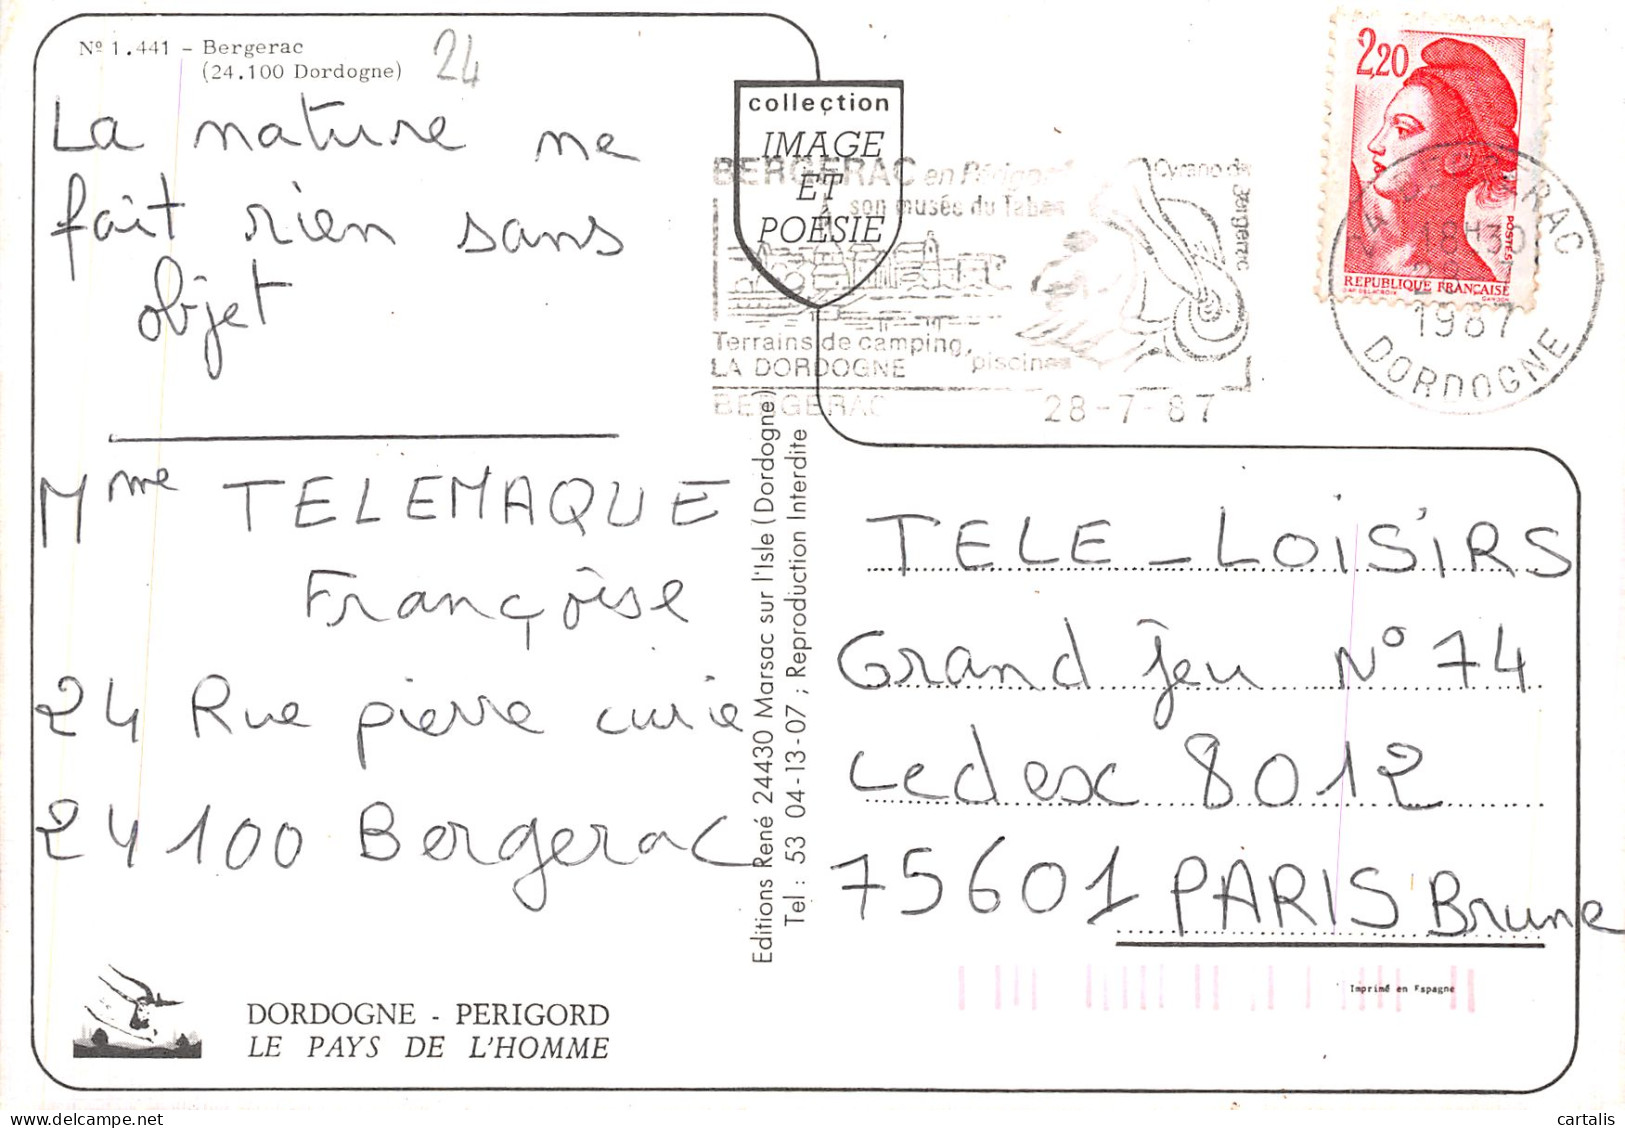 Nº 1.441 - Bergerac
(24.100 Dordogne)
24
La nature ne
fait rien sans
objet
Mme TELEMAQUE
Françoise
24 Rue pierre curie
24100 Bergerac
DORDOGNE - PERIGORD
LE PAYS DE L'HOMME
collection
IMAGE
ET
POÉSIE
BERGERAC en Périgord
son musée du Tabac
Cyrano de
Bergerac
Terrains de camping, piscines
LA DORDOGNE
BERGERAC 28-7-87
Editions René 24430 Marsac sur l'Isle (Dordogne)
Tel : 53 04-13-07 ; Reproduction Interdite
2,20
POSTES
REPUBLIQUE FRANÇAISE
18H30
1987
DORDOGNE
TELE-LOISIRS
Grand jeu N° 74
Cedex 8012
75601 PARIS Brune
Imprimé en Espagne
cartalis